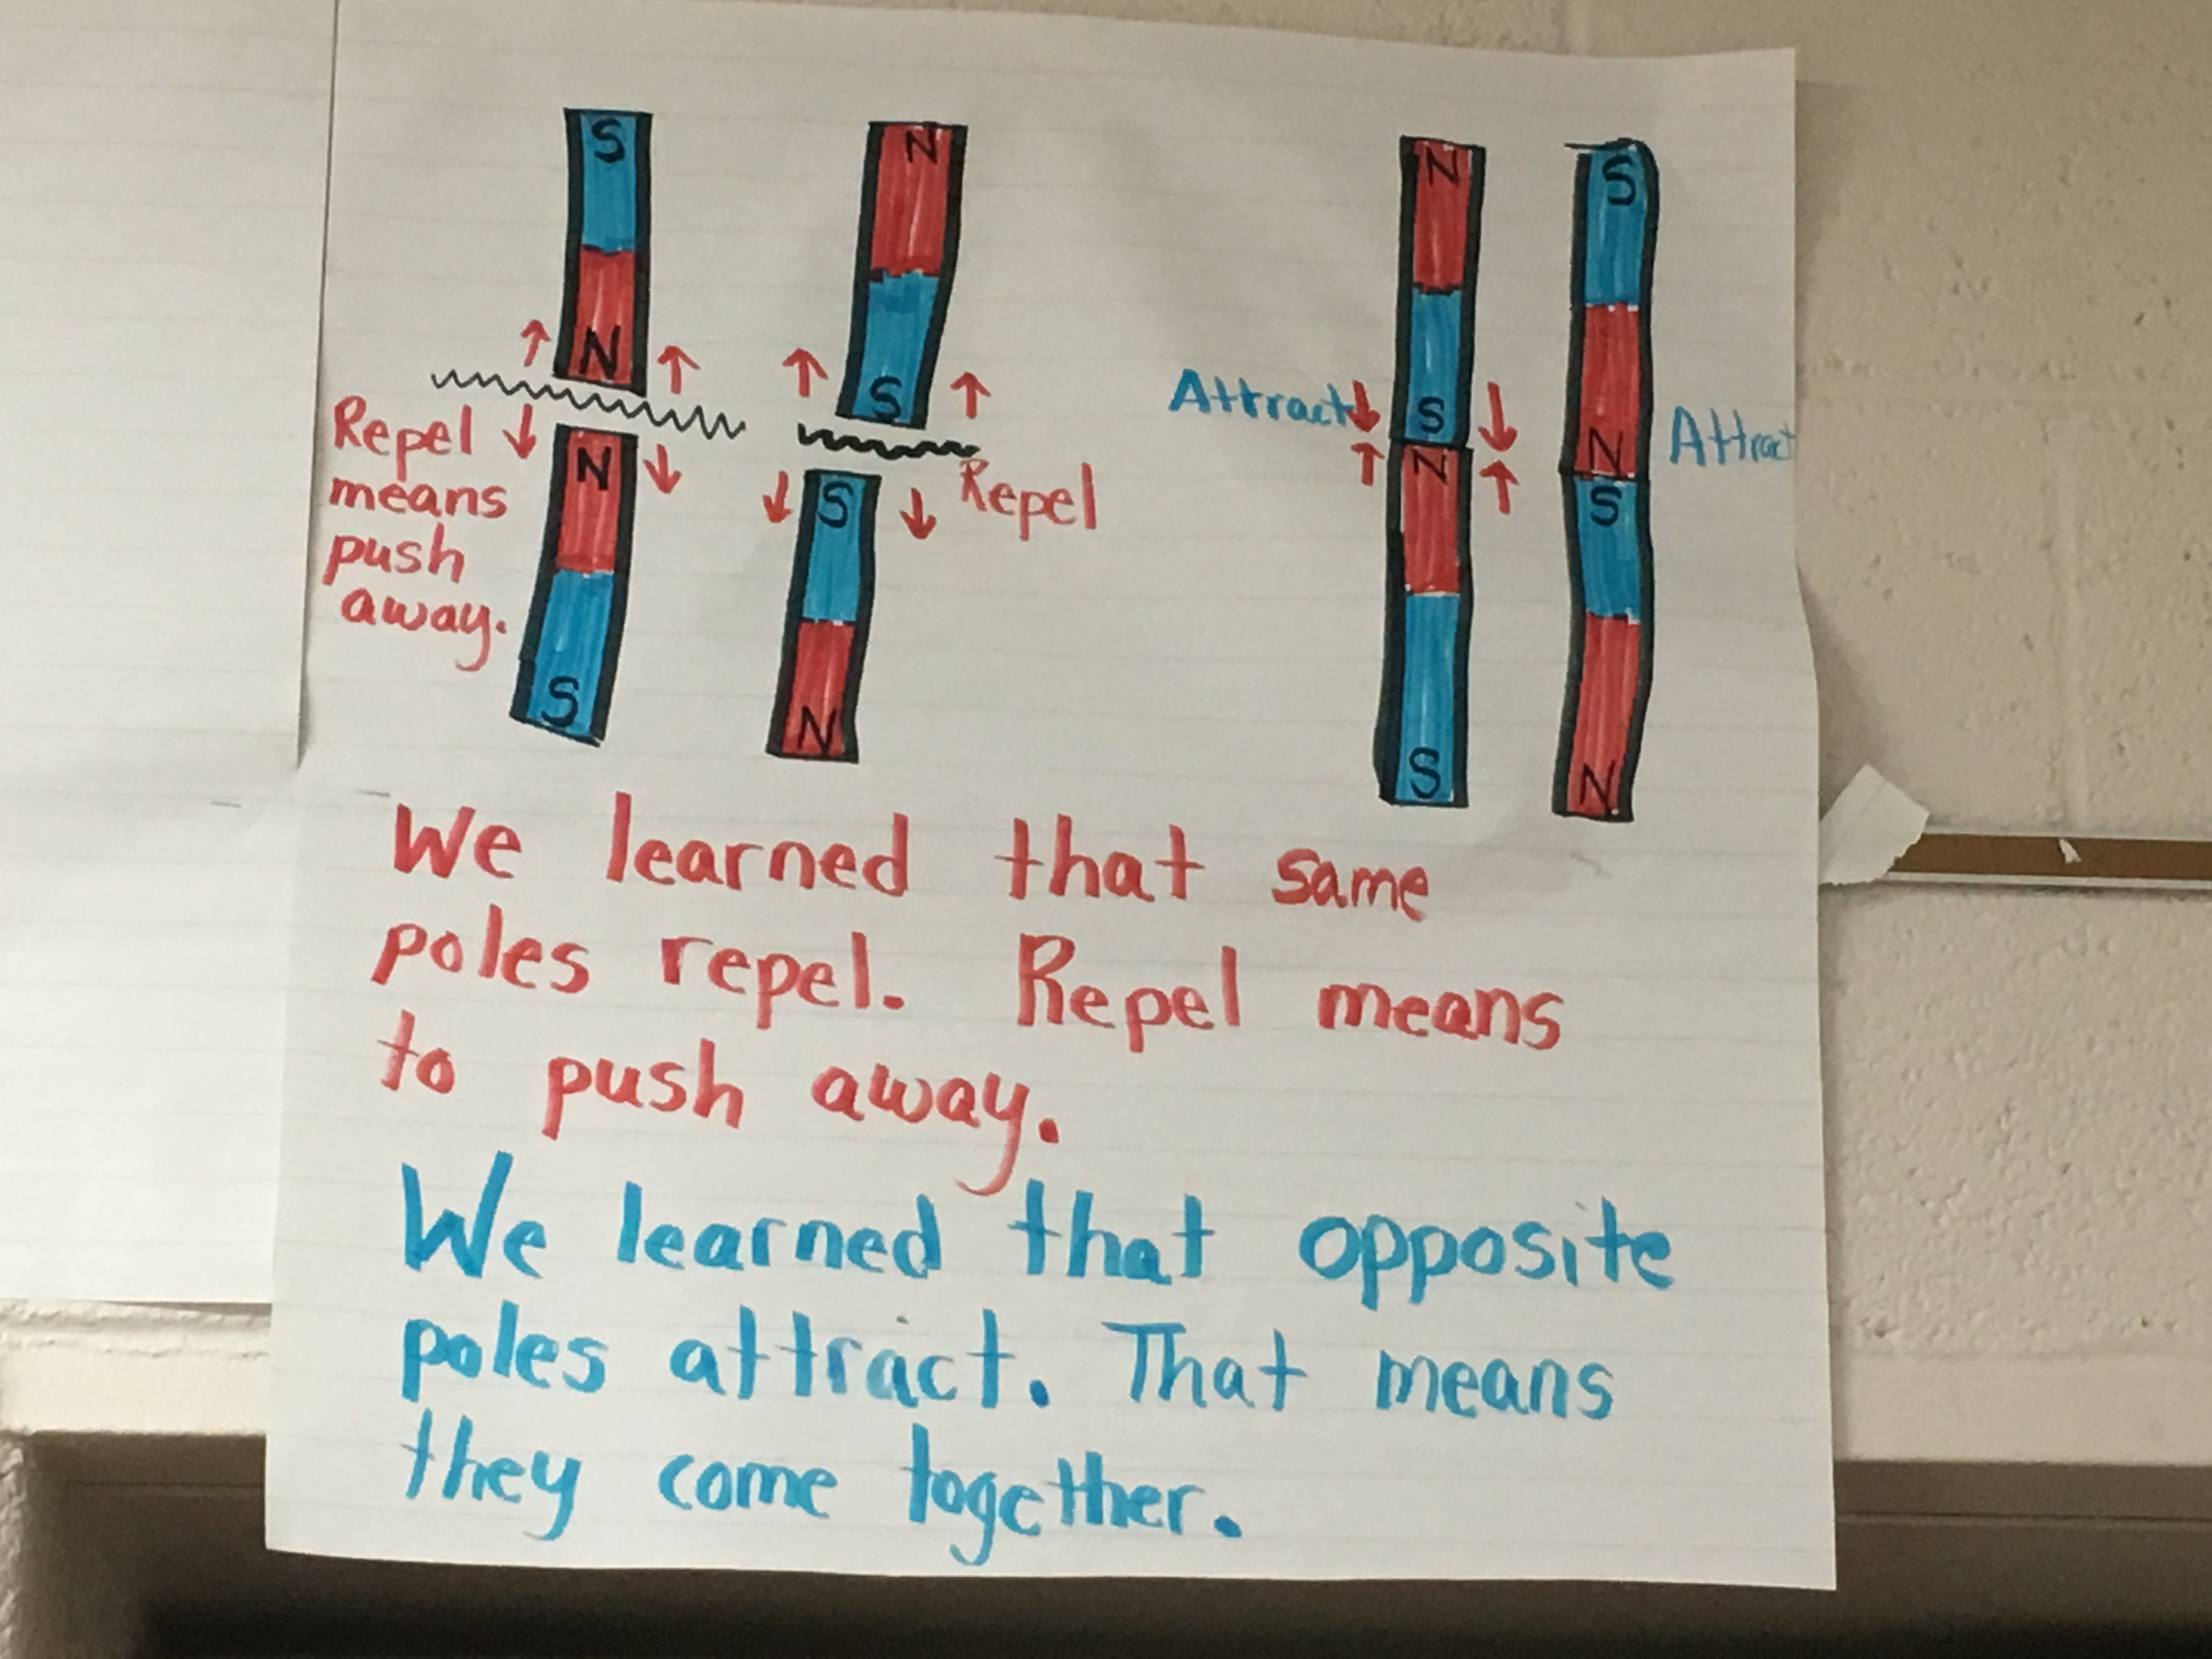 S
N
N
S
Repel
means
push
away.
N
S
S
N
Repel
N
S
N
S
Attract
S
N
S
N
Attract
We learned that same
poles repel. Repel means
to push away.
We learned that opposite
poles attract. That means
they come together.